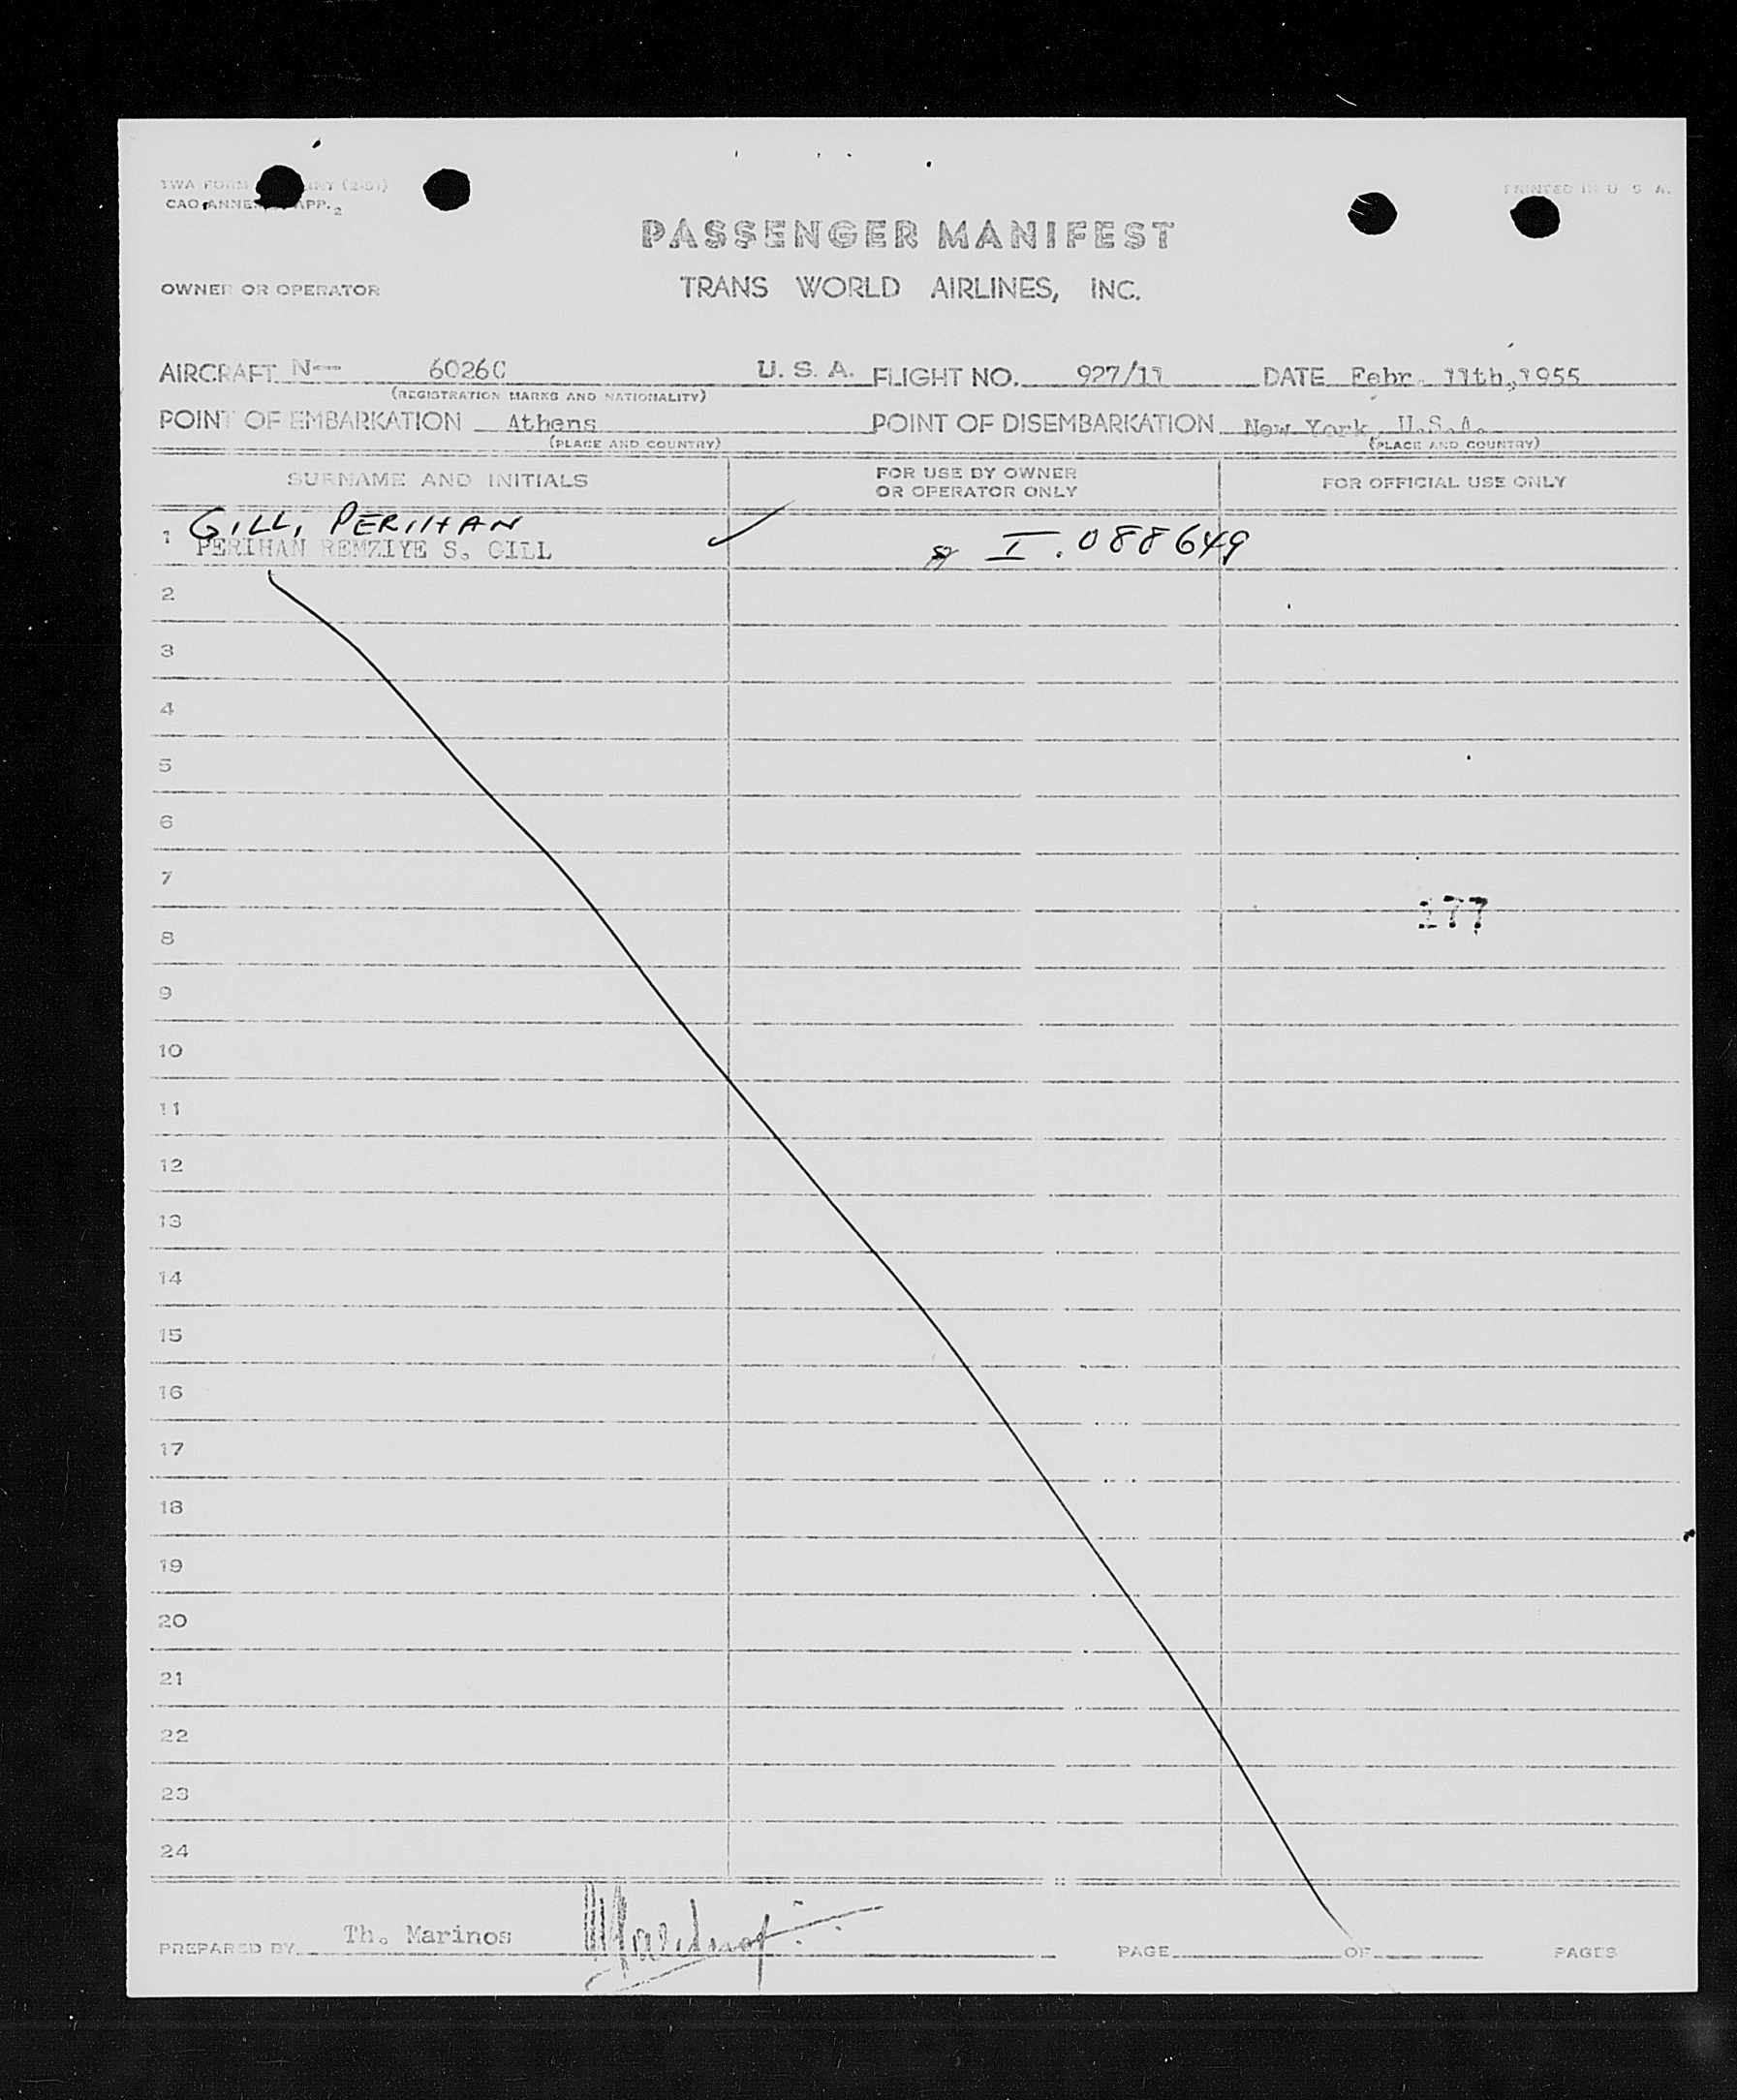 TWA FORM (2-51)
PRINTED IN U. S. A.
CAO ANNEX APP. 2
PASSENGER MANIFEST
OWNER OR OPERATOR
TRANS WORLD AIRLINES, INC.
AIRCRAFT N-- 6026C U. S. A. FLIGHT NO. 927/11 DATE Febr. 11th, 1955
(REGISTRATION MARKS AND NATIONALITY)
POINT OF EMBARKATION Athens POINT OF DISEMBARKATION New York, U.S.A.
(PLACE AND COUNTRY) (PLACE AND COUNTRY)
SURNAME AND INITIALS
FOR USE BY OWNER
OR OPERATOR ONLY
FOR OFFICIAL USE ONLY
GILL, PERIHAN
1 PERIHAN REMZIYE S. GILL I.088649
2
3
4
5
6
7
177
8
9
10
11
12
13
14
15
16
17
18
19
20
21
22
23
24
PREPARED BY Th. Marinos PAGE OF PAGES